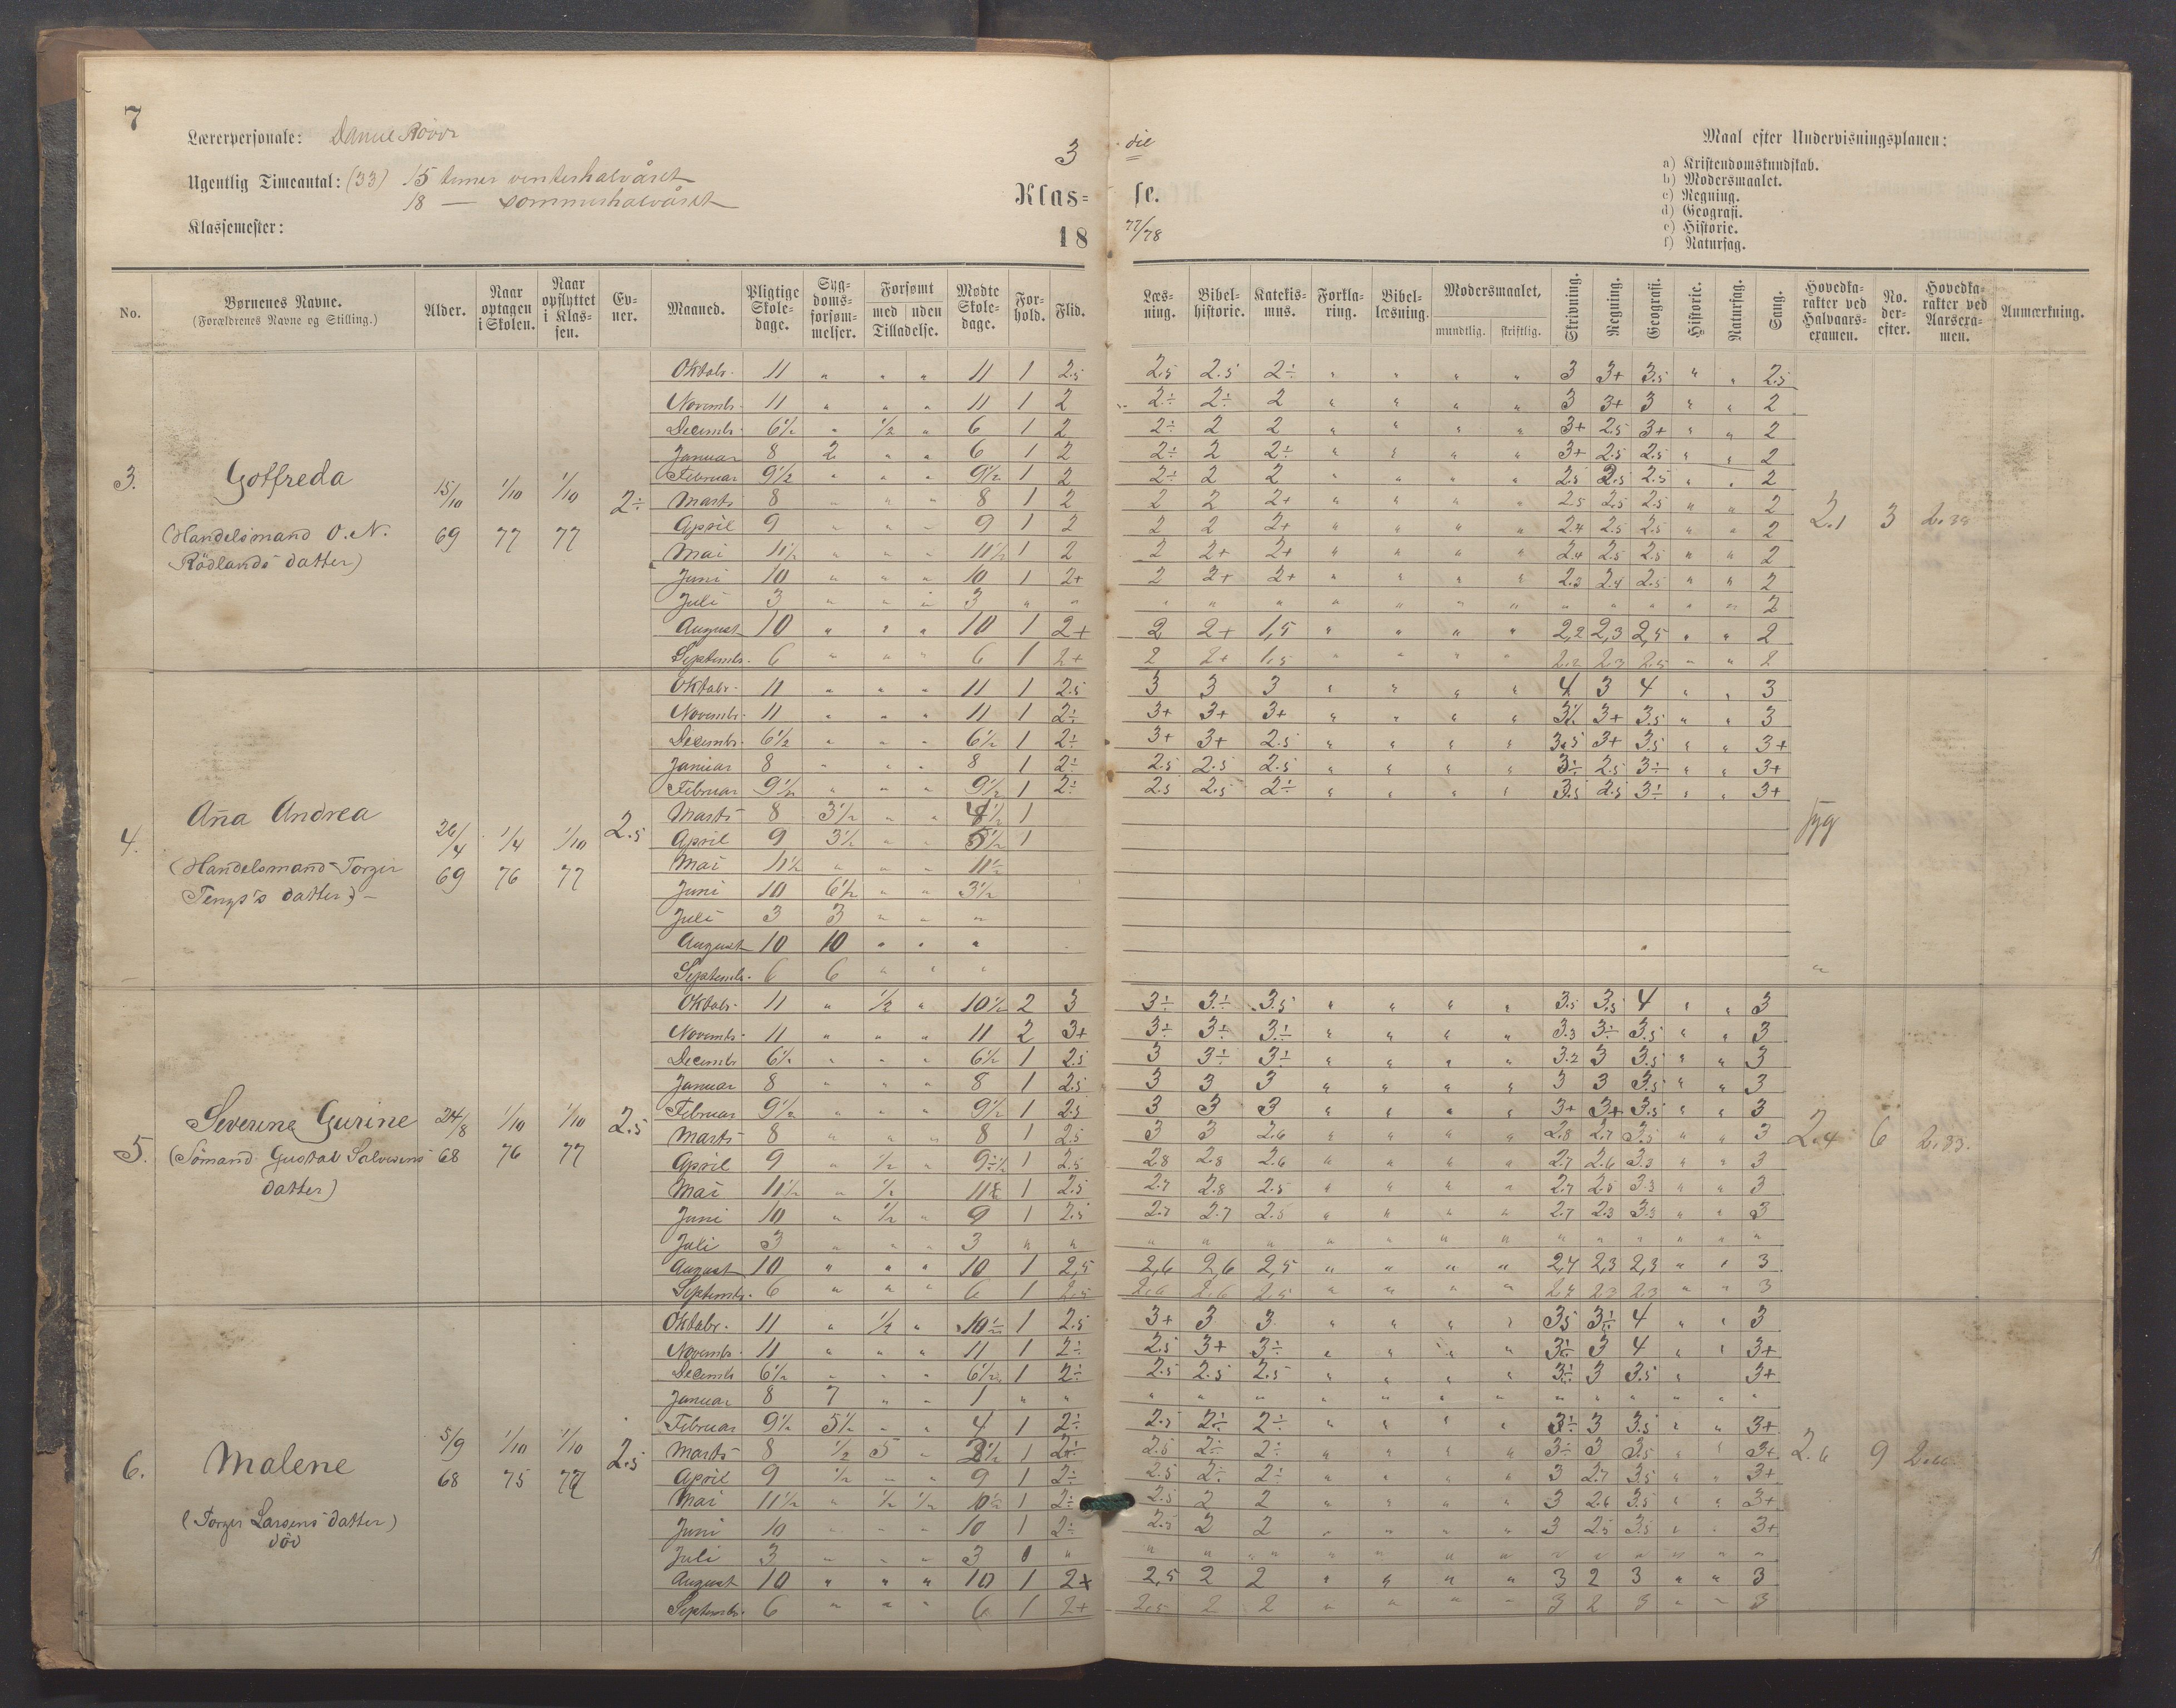 7
Lærerpersonale: Daniel
Ugentlig Timeantal: (33) 15 timer vinterhalvåret
18 — sommerhalvåret
Klassemester:
3 die
Klas- se.
18 77/78
Maal efter Undervisningsplanen:
a) Kristendomskundskab.
b) Modersmaalet.
c) Regning.
d) Geografi.
e) Historie.
f) Naturfag.
No. Børnenes Navne. (Forældrenes Navne og Stilling.) Alder. Naar optagen i Skolen. Naar opflyttet i Klassen. Evner. Maaned. Pligtige Skoledage. Sygdomsforsømmelser. Forsømt med uden Tilladelse. Mødte Skoledage. Forhold. Flid. Læsning. Bibelhistorie. Katekismus. Forklaring. Bibellæsning. Modersmaalet, mundtlig. skriftlig. Skrivning. Regning. Geografi. Historie. Naturfag. Sang. Hovedkarakter ved Halvaarsexamen. No. derefter. Hovedkarakter ved Aarsexamen. Anmærkning.
3. Gotfreda
(Handelsmand O. N.
Rödlands datter)
15/10 69 1/10 77 1/10 77 2÷
Oktobr. 11 " " " 11 1 2.5 2.5 2.5 2÷ " " " " 3 3+ 3.5 " " 2.5
Novembr. 11 " " " 11 1 2 2÷ 2÷ 2 " " " " 3 3+ 3 " " 2
Decembr. 6½ " ½ " 6 1 2 2÷ 2 2 " " " " 3+ 2.5 3+ " " 2
Januar 8 2 " " 6 1 2 2÷ 2 2÷ " " " " 3+ 2.5 2.5 " " 2
Februar 9½ " " " 9½ 1 2 2÷ 2 2 " " " " 2.5 2.5 2.5 " " 2
Marts 8 " " " 8 1 2 2 2 2+ " " " " 2.5 2.5 2.5 " " 2
April 9 " " " 9 1 2 2 2 2+ " " " " 2.4 2.5 2.5 " " 2
Mai 11½ " " " 11½ 1 2 2 2+ 2+ " " " " 2.4 2.5 2.5 " " 2
Juni 10 " " " 10 1 2+ 2 2+ 2+ " " " " 2.3 2.4 2.5 " " 2
Juli 3 " " " 3 " " " " " " " " " " " " " " 2
August 10 " " " 10 1 2+ 2 2+ 1,5 " " " " 2,2 2,3 2,5 " " 2
Septembr. 6 " " " 6 1 2+ 2 2+ 1.5 " " " " 2.2 2.3 2.5 " " 2
2.1 3
4. Aña Andrea
(Handelsmand Torger
datter)
26/4 69 1/4 76 1/10 77 2.5
Oktobr. 11 " " " 11 1 2.5 3 3 3 " " " " 4 3 4 " " 3
Novembr. 11 " " " 11 1 2÷ 3+ 3+ 3+ " " " " 3½ 3+ 3.5 " " 3
Decembr. 6½ " " " 6½ 1 2÷ 3+ 3+ 2.5 " " " " 3.5 3+ 3.5 " " 3+
Januar 8 " " " 8 1 2÷ 2.5 2.5 2.5 " " " " 3÷ 2.5 3÷ " " 3+
Februar 9½ " " " 9½ 1 2÷ 2.5 2.5 2÷ " " " " 3.5 2.5 3÷ " " 3+
Marts 8 3½ " " 4½ 1
April 9 3½ " " 5½ 1
Mai 11½ " " " 11½
Juni 10 6½ " " 3½
Juli 3 3 " " "
August 10 10 " " "
Septembr. 6 6 " " "
syg
5. Severine Gurine
(Sömand Gustav Salvesens
datter)
24/8 68 1/10 76 1/10 77 2.5
Oktobr. 11 " ½ " 10½ 2 3 3÷ 3÷ 3.5 " " " " 3.5 3.5 4 " " 3
Novembr. 11 " " " 11 2 3+ 3÷ 3÷ 3÷ " " " " 3.3 3÷ 3.5 " " 3
Decembr 6½ " " " 6½ 1 2.5 3 3÷ 3÷ " " " " 3.2 3 3.5 " " 3
Januar 8 " " " 8 1 2.5 3 3 3 " " " " 3 3 3.5 " " 3
Februar 9½ " " " 9½ 1 2.5 3 3 3 " " " " 3+ 3+ 3.5 " " 3
Marts 8 " " " 8 1 2.5 3 3 2.6 " " " " 2.8 2.7 3.5 " " 3
April 9 " ½ " 1 2.5 2.8 2.8 2.6 " " " " 2.7 2.6 3.3 " " 3
Mai 11½ " ½ " 1 2.5 2.7 2.8 2.5 " " " " 2.7 2.5 3.3 " " 3
Juni 10 " ½ " 9 1 2.5 2.7 2.7 2.5 " " " " 2.7 2.3 3.3 " " 3
Juli 3 " " " 3 " " " " " " " " " " " " " " "
August 10 " " " 10 1 2,5 2,6 2,6 2,5 " " " " 2,4 2,3 2,3 " " 3
Septembr. 6 " " " 6 1 2,5 2,6 2,6 2,5 " " " " 2.4 2.3 2.3 " " 3
2.4 6 2.33.
6. Malene
(Torger Larsens datter)
död
5/9 68 1/10 75 1/10 77 2.5
Oktobr. 11 " ½ " 10½ 1 2.5 3+ 3 3 " " " " 3.5 3÷ 4 " " 3
Novembr. 11 " " " 11 1 2÷ 2.5 3+ 3÷ " " " " 3÷ 3 4 " " 3+
Decembr 6½ " " " 6½ 1 2÷ 2.5 2.5 2.5 " " " " 3÷ 3 3.5 " 3+
Januar 8 7 " " 1 " " " " " " " " " " " " " " "
Februar 9½ 5½ " " 4 1 2÷ 2.5 2÷ 2÷ " " " " 3÷ 3 3.5 " " 3+
Marts 8 ½ 5 " 2½ 1 2÷ 2.5 2÷ 2÷ " " " " 3÷ 3 3.5 " " 3+
April 9 ½ " " 9 1 2÷ 2.5 2÷ 2÷ " " " " 3 2.7 3.5 " " 3+
Mai 11½ " ½ ½ 10½ 1 2÷ 2.5 2 2 " " " " 3 2.6 3.5 " " 3+
Juni 10 " " " 10 1 2÷ 2.5 2 2 " " " " 3 2.5 3.5 " " 3+
Juli 3 " " " 3 " " " " " " " " " " " " " "
August 10 " " " 10 1 2+ 2,5 2 2 " " " " 3 2 3 " " 3
Septembr. 6 " " " 6 1 2+ 2.5 2 2 " " " " 3 2 3 " " 3
2.6 9